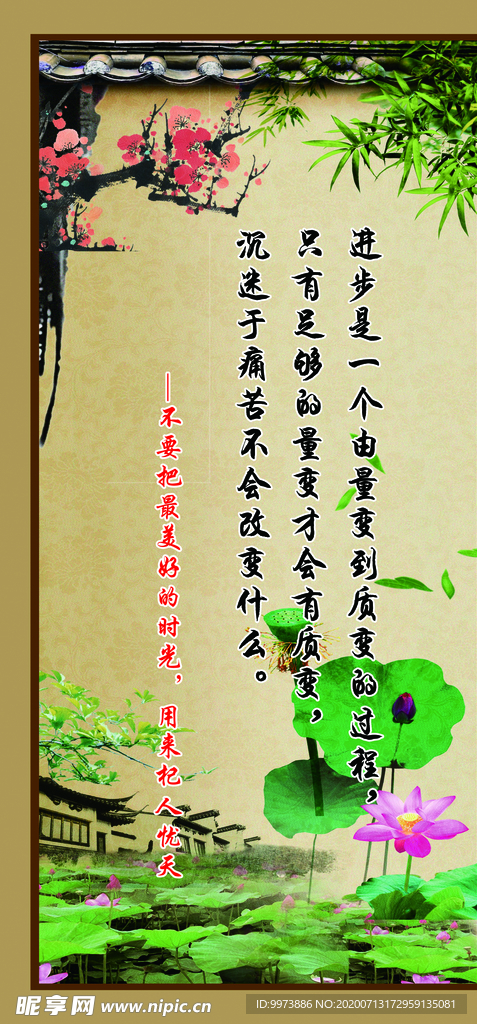 进步是一个由量变到质变的过程，
只有足够的量变才会有质变，
沉迷于痛苦不会改变什么。
—不要把最美好的时光，用来杞人忧天
昵享网 www.nipic.cn
ID:9973886 NO:20200713172959135081